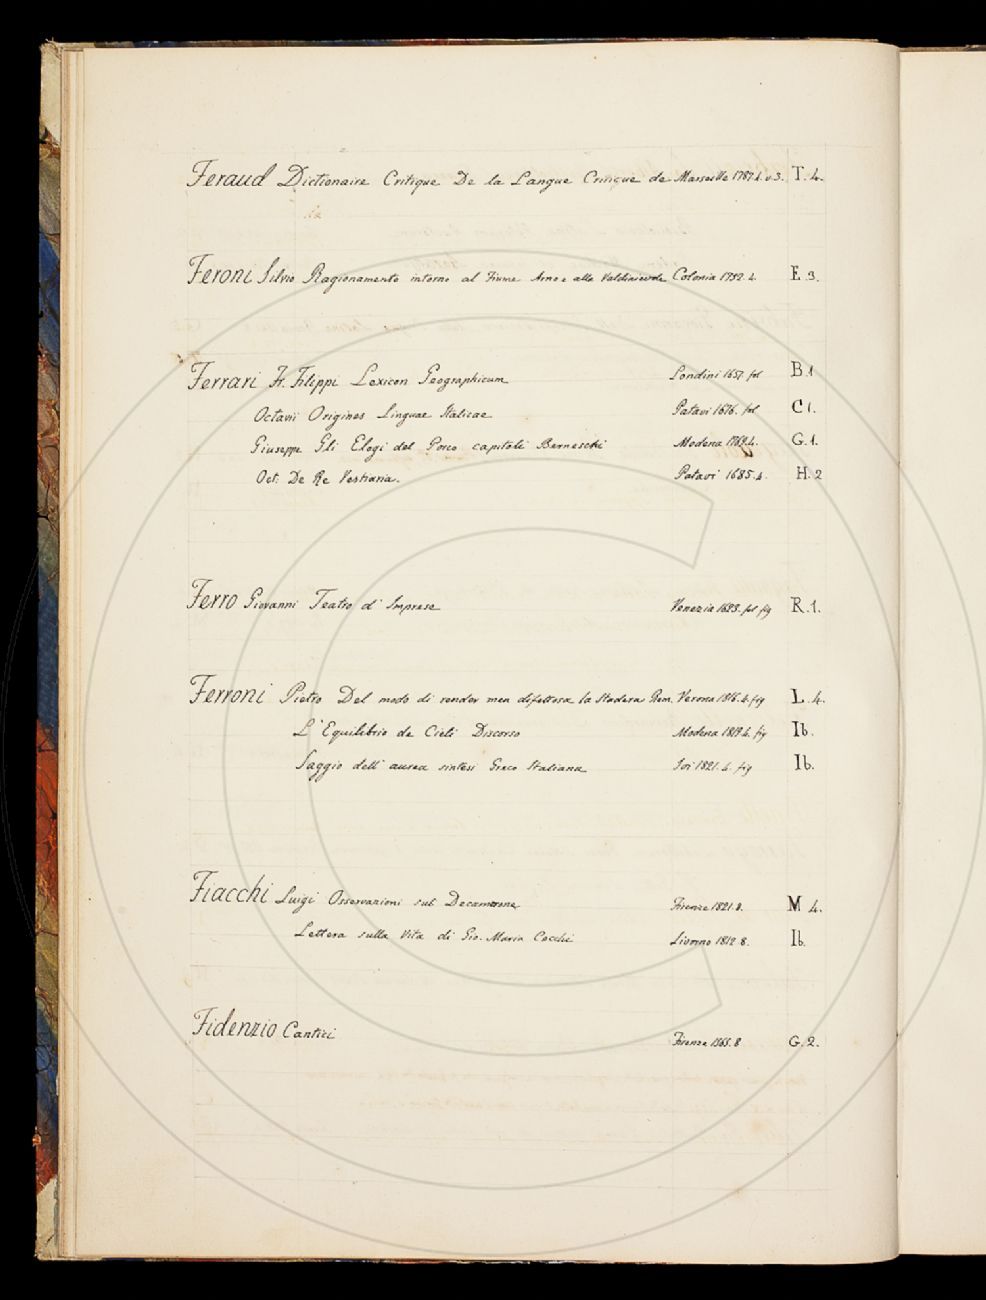 Feraud Dictionaire Critique De la Langue Critique de Marseille 1787.4.v.3. T.4.
Feroni Silvio Ragionamento intorno al Fiume Arno e alla Valdinievole Colonia 1732.4 E.3.
Ferrari Fr. Filippi Lexicon Geographicum Londini 1657. fol B.1
Octavii Origines Linguae Italicae Patavi 1676. fol C1.
Giuseppe Gli Elogi del Porco capitoli Berneschi Modena 1761.4. G.1.
Oct. De Re Vestiaria. Patavi 1685.4. H.2
Ferro Giovanni Teatro d' Imprese Venezia 1623. fol fig R.1.
Ferroni Pietro Del modo di render men difettosa la Stadera Rom. Verona 1816.4. fig L.4.
L'Equilibrio de Cieli Discorso Modena 1819.4. fig Ib.
Saggio dell' aurea sintesi Greco Italiana Ivi 1821.4. fig Ib.
Fiacchi Luigi Osservazioni sul Decamerone Firenze 1821.8. M 4.
Lettera sulla Vita di Gio. Maria Cecchi Livorno 1812.8. Ib.
Fidenzio Cantici Firenze 1565.8 G.2.